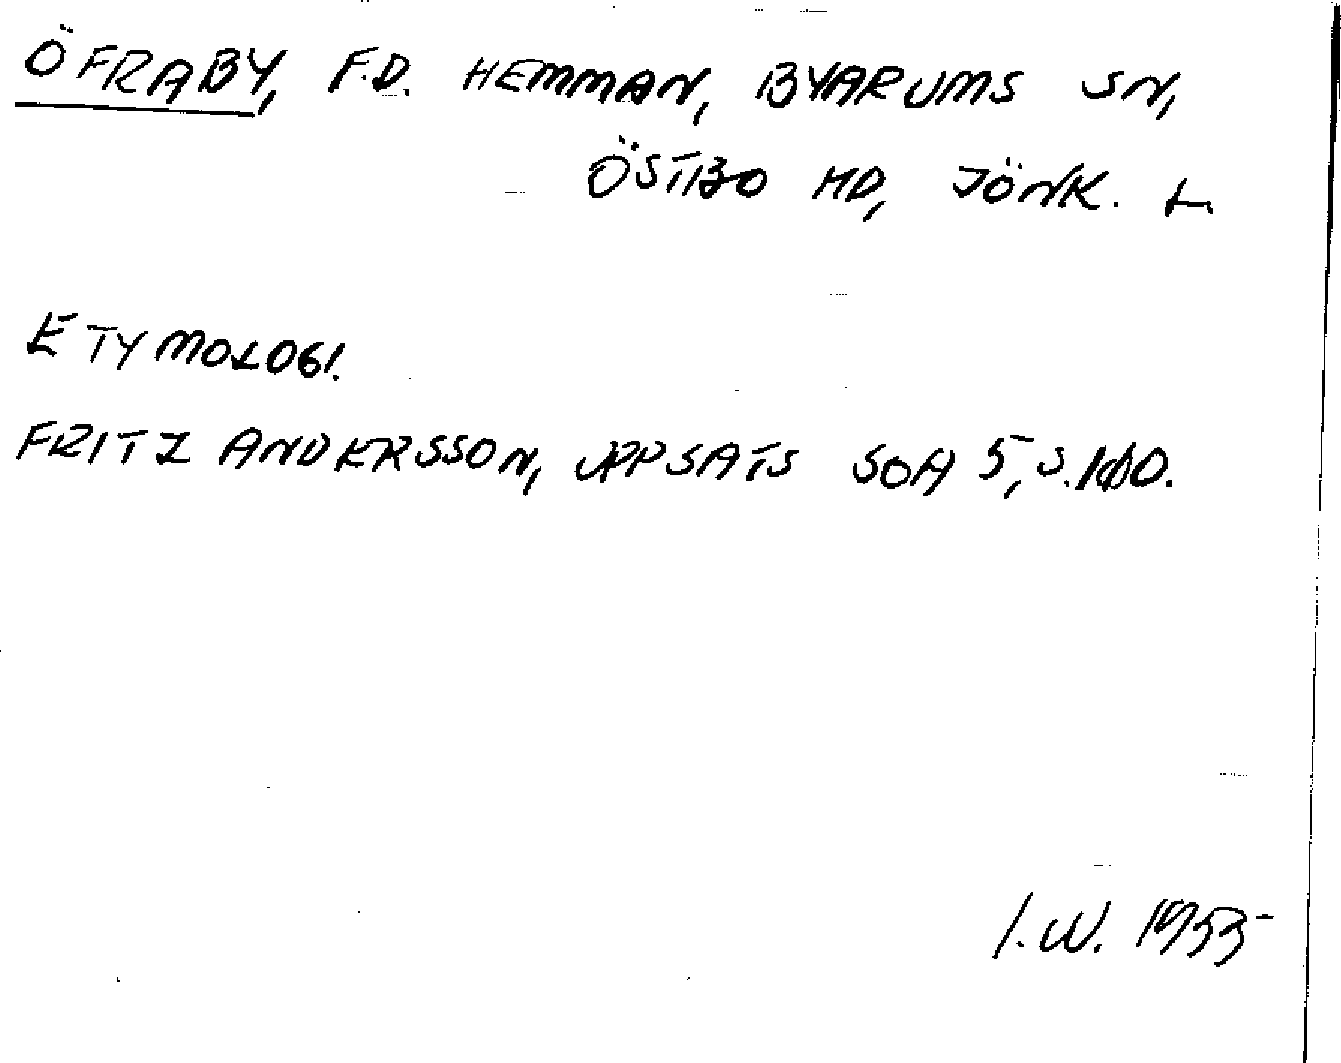 ÖFRABY, F.D. HEMMAN, BYARUMS SN,
ÖSTBO HD, JÖNK. L
ETYMOLOGI.
FRITZ ANDERSSON, UPPSATS SOA 5, S. 100.
I.W. 1955